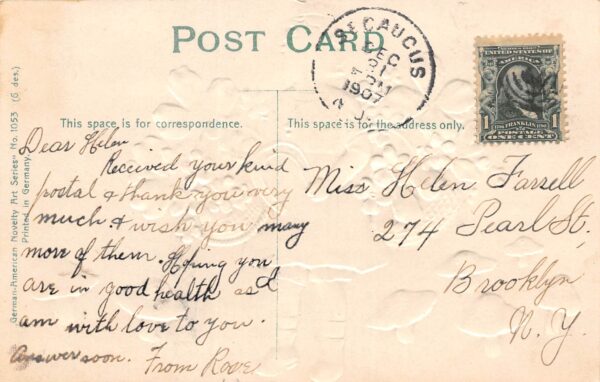 POST CARD
SECAUCUS
DEC
31
1907
N.J.
UNITED STATES OF AMERICA
FRANKLIN
1 POSTAGE 1
ONE CENT
This space is for correspondence.
This space is for the address only.
German-American Novelty Art Series" No. 1053 (6 des.)
Printed in Germany.
Dear Helen
Received your kind
postal & thank you very
much & wish you many
more of them. Hoping you
are in good health as I
am with love to you.
Answer soon. From Rose
Miss Helen Farrell
274 Pearl St.
Brooklyn
N. Y.